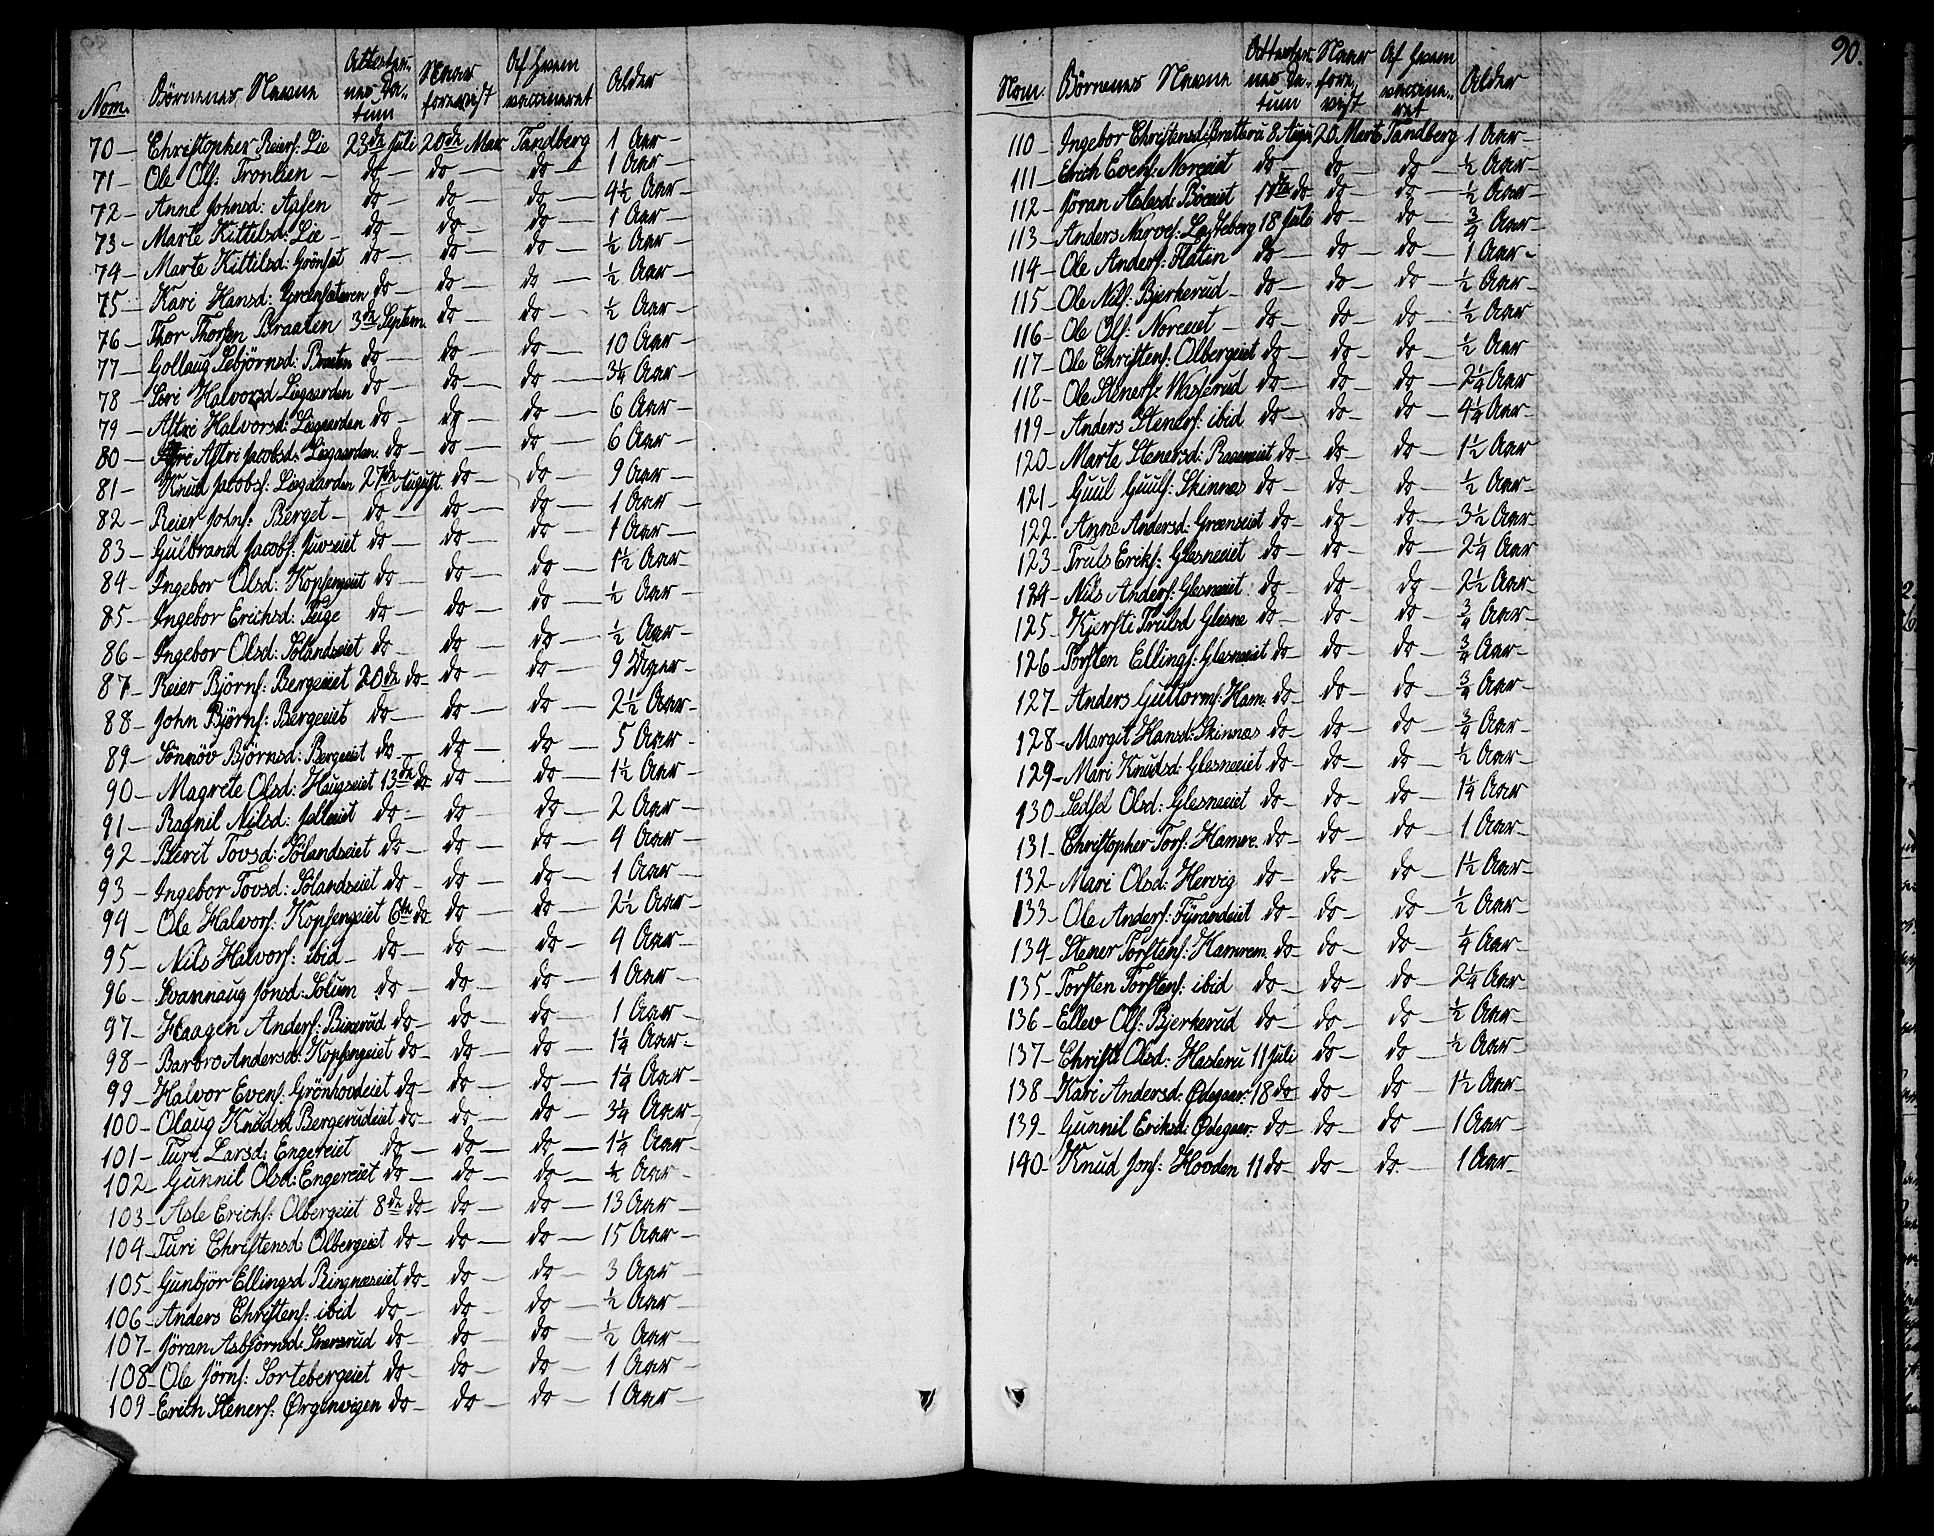 Nom. Börnenes Navne Attester-nes Da-tum Naar forevist Af hvem vaccineret Alder
70 – Christopher Reiers: Lie 23de Juli 20de Mar Tandberg 1 Aar –
71 – Ole Ols: Tronlien – do – do – do – 1 Aar –
72 – Anne Johnsd: Aasen do – do – do – 4½ Aar –
73 – Marte Kittilsd: Lie – do – do – do – 1 Aar –
74 – Marte Kittilsd: Grönset do – do – do – ½ Aar –
75 – Kari Hansd: Grønsæteren do – do – do – ½ Aar –
76 – Thor Thorsen Braaten 3de Septem. do – do – ½ Aar –
77 – Gollaug Sebjörnsd: Braaten do – do – do – 10 Aar –
78 – Siri Halvorsd Liegaarden do – do – do – 3¼ Aar –
79 – Astri Halvorsd: Liegaarden do – do – do – 6 Aar –
80 – Astri Jacobsd: Liegaarden do – do – do – 6 Aar –
81 – Knud Jacobs: Liegaarden 27de August. do – do – 9 Aar –
82 – Reier Johns: Berget – do – do – do – 1 Aar –
83 – Gulbrand Jacobs: Juvseiet do – do – do – 1 Aar –
84 – Ingebor Olsd: Kopsengeiet do – do – do – 1½ Aar –
85 – Ingebor Erichsd: Teige do – do – do – ½ Aar –
86 – Ingebor Olsd: Sölandseiet do – do – do – ½ Aar –
87 – Reier Björns: Bergeeiet 20de do – do – do – 9 Uger –
88 – John Björns: Bergeeiet do – do – do – 2½ Aar –
89 – Sönnöv Björnsd: Bergeeiet do – do – do – 5 Aar –
90 – Magrete Olsd: Haugseiet 13de do do – do – 1½ Aar –
91 – Ragnil Nilsd: Jelleeiet do – do – do – 2 Aar –
92 – Berit Tovsd: Sölandseiet do – do – do – 4 Aar –
93 – Ingebor Tovsd: Sölandseiet do – do – do – 1 Aar –
94 – Ole Halvors: Kopsengeiet 6te do do – do – 2½ Aar –
95 – Nils Halvors: ibid – do – do – do – 4 Aar –
96 – Svannaug Jonsd: Solum do – do – do – 1 Aar –
97 – Haagen Anders: Bixerud do – do – do – 1 Aar –
98 – Barbro Andersd: Kopsengeiet do – do – do – 1¼ Aar –
99 – Halvor Evens: Grönhovdeiet do – do – do – 1¼ Aar –
100 – Olaug Knudsd Bergerudeiet do – do – do – 3¼ Aar –
101 – Turi Larsd: Engereiet do – do – do – 1¼ Aar –
102 – Gunnil Olsd: Engereiet do – do – do – ½ Aar –
103 – Asle Erichs: Olbergeiet 8de do – do – do – 13 Aar –
104 – Turi Christensd: Olbergeiet do – do – do – 15 Aar –
105 – Gunbjör Ellingsd Ringneseiet do – do – do – 3 Aar –
106 – Anders Christens: ibid do – do – do – ½ Aar –
107 – Jöran Asbjörnsd: Snersrud do – do – do – ½ Aar –
108 – Ole Jörns: Sortebergeiet do – do – do – 1 Aar –
109 – Erich Steners: Ørgenvigen do – do – do – 1 Aar –
90.
Nom. Börnenes Navne Attester-nes Da-tum Naar fore-vist Af hvem vaccine-ret Alder
110 – Ingebor Christensd: Bratteru 8 Augu. 20 Marts Tandberg 1 Aar –
111 – Erich Evens: Noreeiet do – do – do – ½ Aar –
112 – Jöran Aslesd: Böeeiet 17de do do – do – ½ Aar –
113 – Anders Narves: Lasteberg 18 Juli do – do – ¾ Aar –
114 – Ole Anders: Flaten do – do – do – 1 Aar –
115 – Ole Nils: Bjerkerud – do – do – do – ½ Aar –
116 – Ole Ols: Noreeiet – do – do – do – ½ Aar
117 – Ole Christens: Olbergeiet do – do – do – ½ Aar
118 – Ole Steners: Vaserud do – do – do – 2¼ Aar
119 – Anders Steners: ibid do – do – do – 4¼ Aar –
120 – Marte Stenersd: Roseneiet do – do – do – 1½ Aar
121 – Guul Guuls: Skinnes do – do – do – ½ Aar –
122 – Anne Andersd: Grønseiet do – do – do – 3½ Aar –
123 – Truls Eriks: Glesneeiet do – do – do – 2¼ Aar
124 – Nils Anders: Glesneeiet do – do – do – 2½ Aar –
125 – Kjersti Trulsd Glesne do – do – do – ¾ Aar –
126 – Torsten Ellings: Glesneeiet do – do – do – ¾ Aar –
127 – Anders Guttorms: Ham. do – do – do – ¾ Aar –
128 – Margit Hansd: Skinnes do – do – do – ¾ Aar –
129 – Mari Knudsd: Glesneeiet do – do – do – ½ Aar –
130 – Sedsel Olsd: Glesneeiet do – do – do – 1¼ Aar
131 – Christopher Tors: Hamre. do – do – do – 1 Aar –
132 – Mari Olsd: Hervig do – do – do – 1½ Aar –
133 – Ole Anders: Fyrandeiet do – do – do – ½ Aar –
134 – Stener Torstens: Hamrem. do – do – do – ¼ Aar –
135 – Torsten Torstens: ibid do – do – do – 2¼ Aar
136 – Ellev Ols: Bjerkerud do – do – do – ½ Aar –
137 – Christi Olsd: Hasleru 11 Juli do – do – ½ Aar –
138 – Kari Andersd: Ødegaar: 18 do do – do – 1½ Aar –
139 – Gunnil Eriksd: Ødegaar. do – do – do – 1 Aar –
140 – Knud Jons: Hovden 11 do – do – do – 1 Aar –